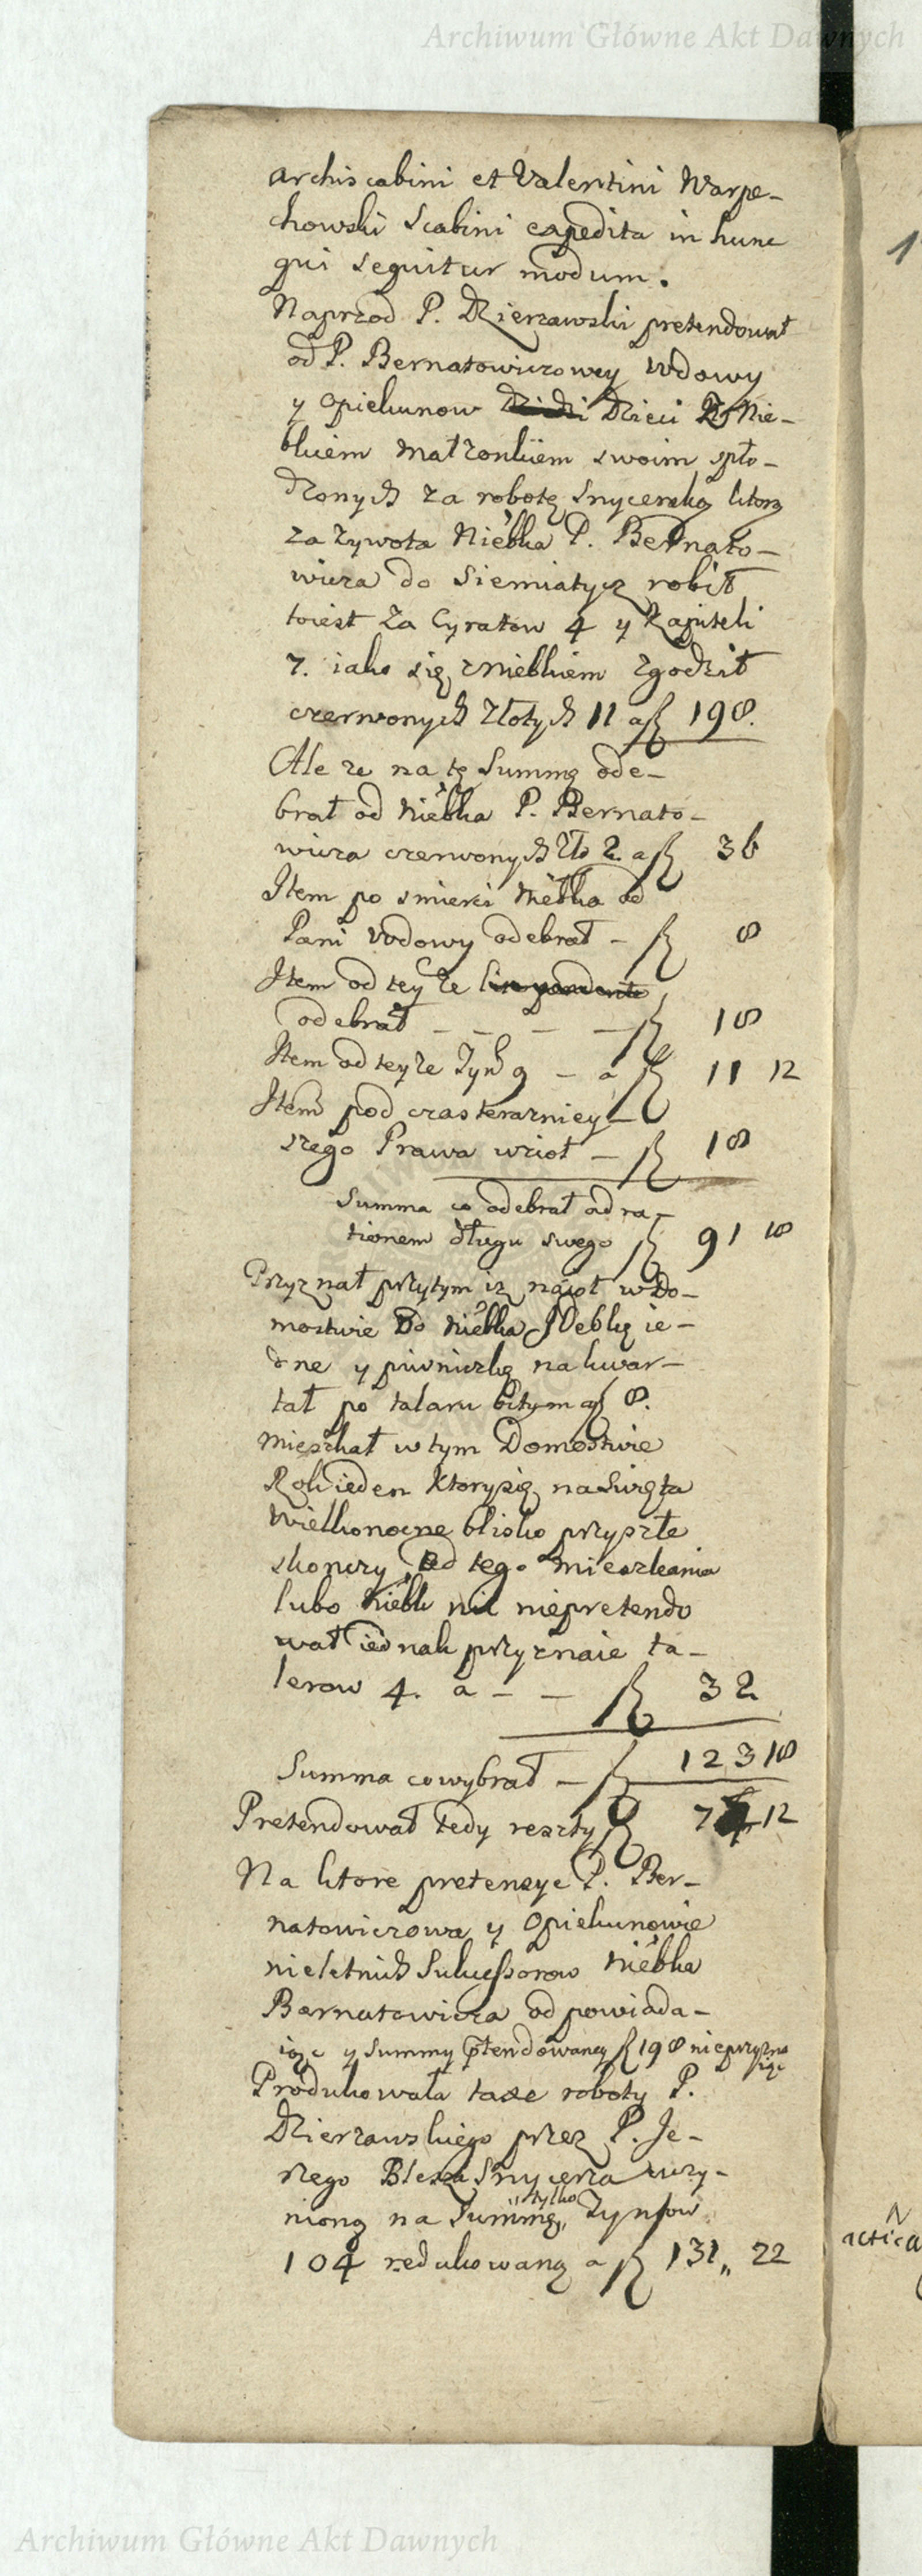 Archiwum Główne Akt Dawnych
archiscabini et Valentini Warpe-
chowski Scabini expedita in hunc
qui sequitur modum.
Naprzod P. Dzierzawski pretendował
od P. Bernatowiczowey Wdowy
y Opiekunow Dzieci Dzieci Z Nie-
bkiem Małzonkiem swoim spło-
dzonych za robotę Snycerską ktorą
za zywota Niebka P. Bernato-
wicza do Siemiatycz robił
toiest Za Cyratow 4 y Kapiteli
7. iako się z Niebkiem Zgodził
czerwonych Złotych 11 a f 198.
Ale ze na tę Summę ode-
brał od Niebka P. Bernato-
wicza czerwonych Zło 2 a f 36
Item po smierci Niebka od
Pani Wdowy odebrał - f 8
Item od teyze
odebrał - - - - f 18
Item od teyze Tynf 9 - a f 11 12
Item pod czas terazniey-
szego Prawa wzioł - f 18
Summa co odebrał ad ra-
tionem długu swego f 91 18
Przyznał przytym iz naioł w Do-
mostwie Do Niebka Izdebkę ie-
dne y piwniczkę na kwar-
tał po talaru bitym a f 8.
Mieszkał w tym Domostwie
Rok ieden Ktory się na Swięta
Wielkonocne blisko przyszłe
skonczy, Od tego Mieszkania
lubo Niebk nic niepretendo
wał iednak przyznaie ta-
lerow 4. a - - f 32
Summa co wybrał - f 123 18
Pretendował tedy reszty f 74 12
Na ktore pretensye P. Ber-
natowiczowa y Opiekunowie
nieletnich Sukcessorow Niebka
Bernatowicza odpowiada-
iąc y summy ptendowaney f 198 nieprzyzna
iąc
Produkowała taxe roboty P.
Dzierzawskiego przez P. Je-
rzego Snycerza uczy-
nioną na Summę,, tylko Tynfow
104 redukowaną a f 131,, 22
Archiwum Główne Akt Dawnych